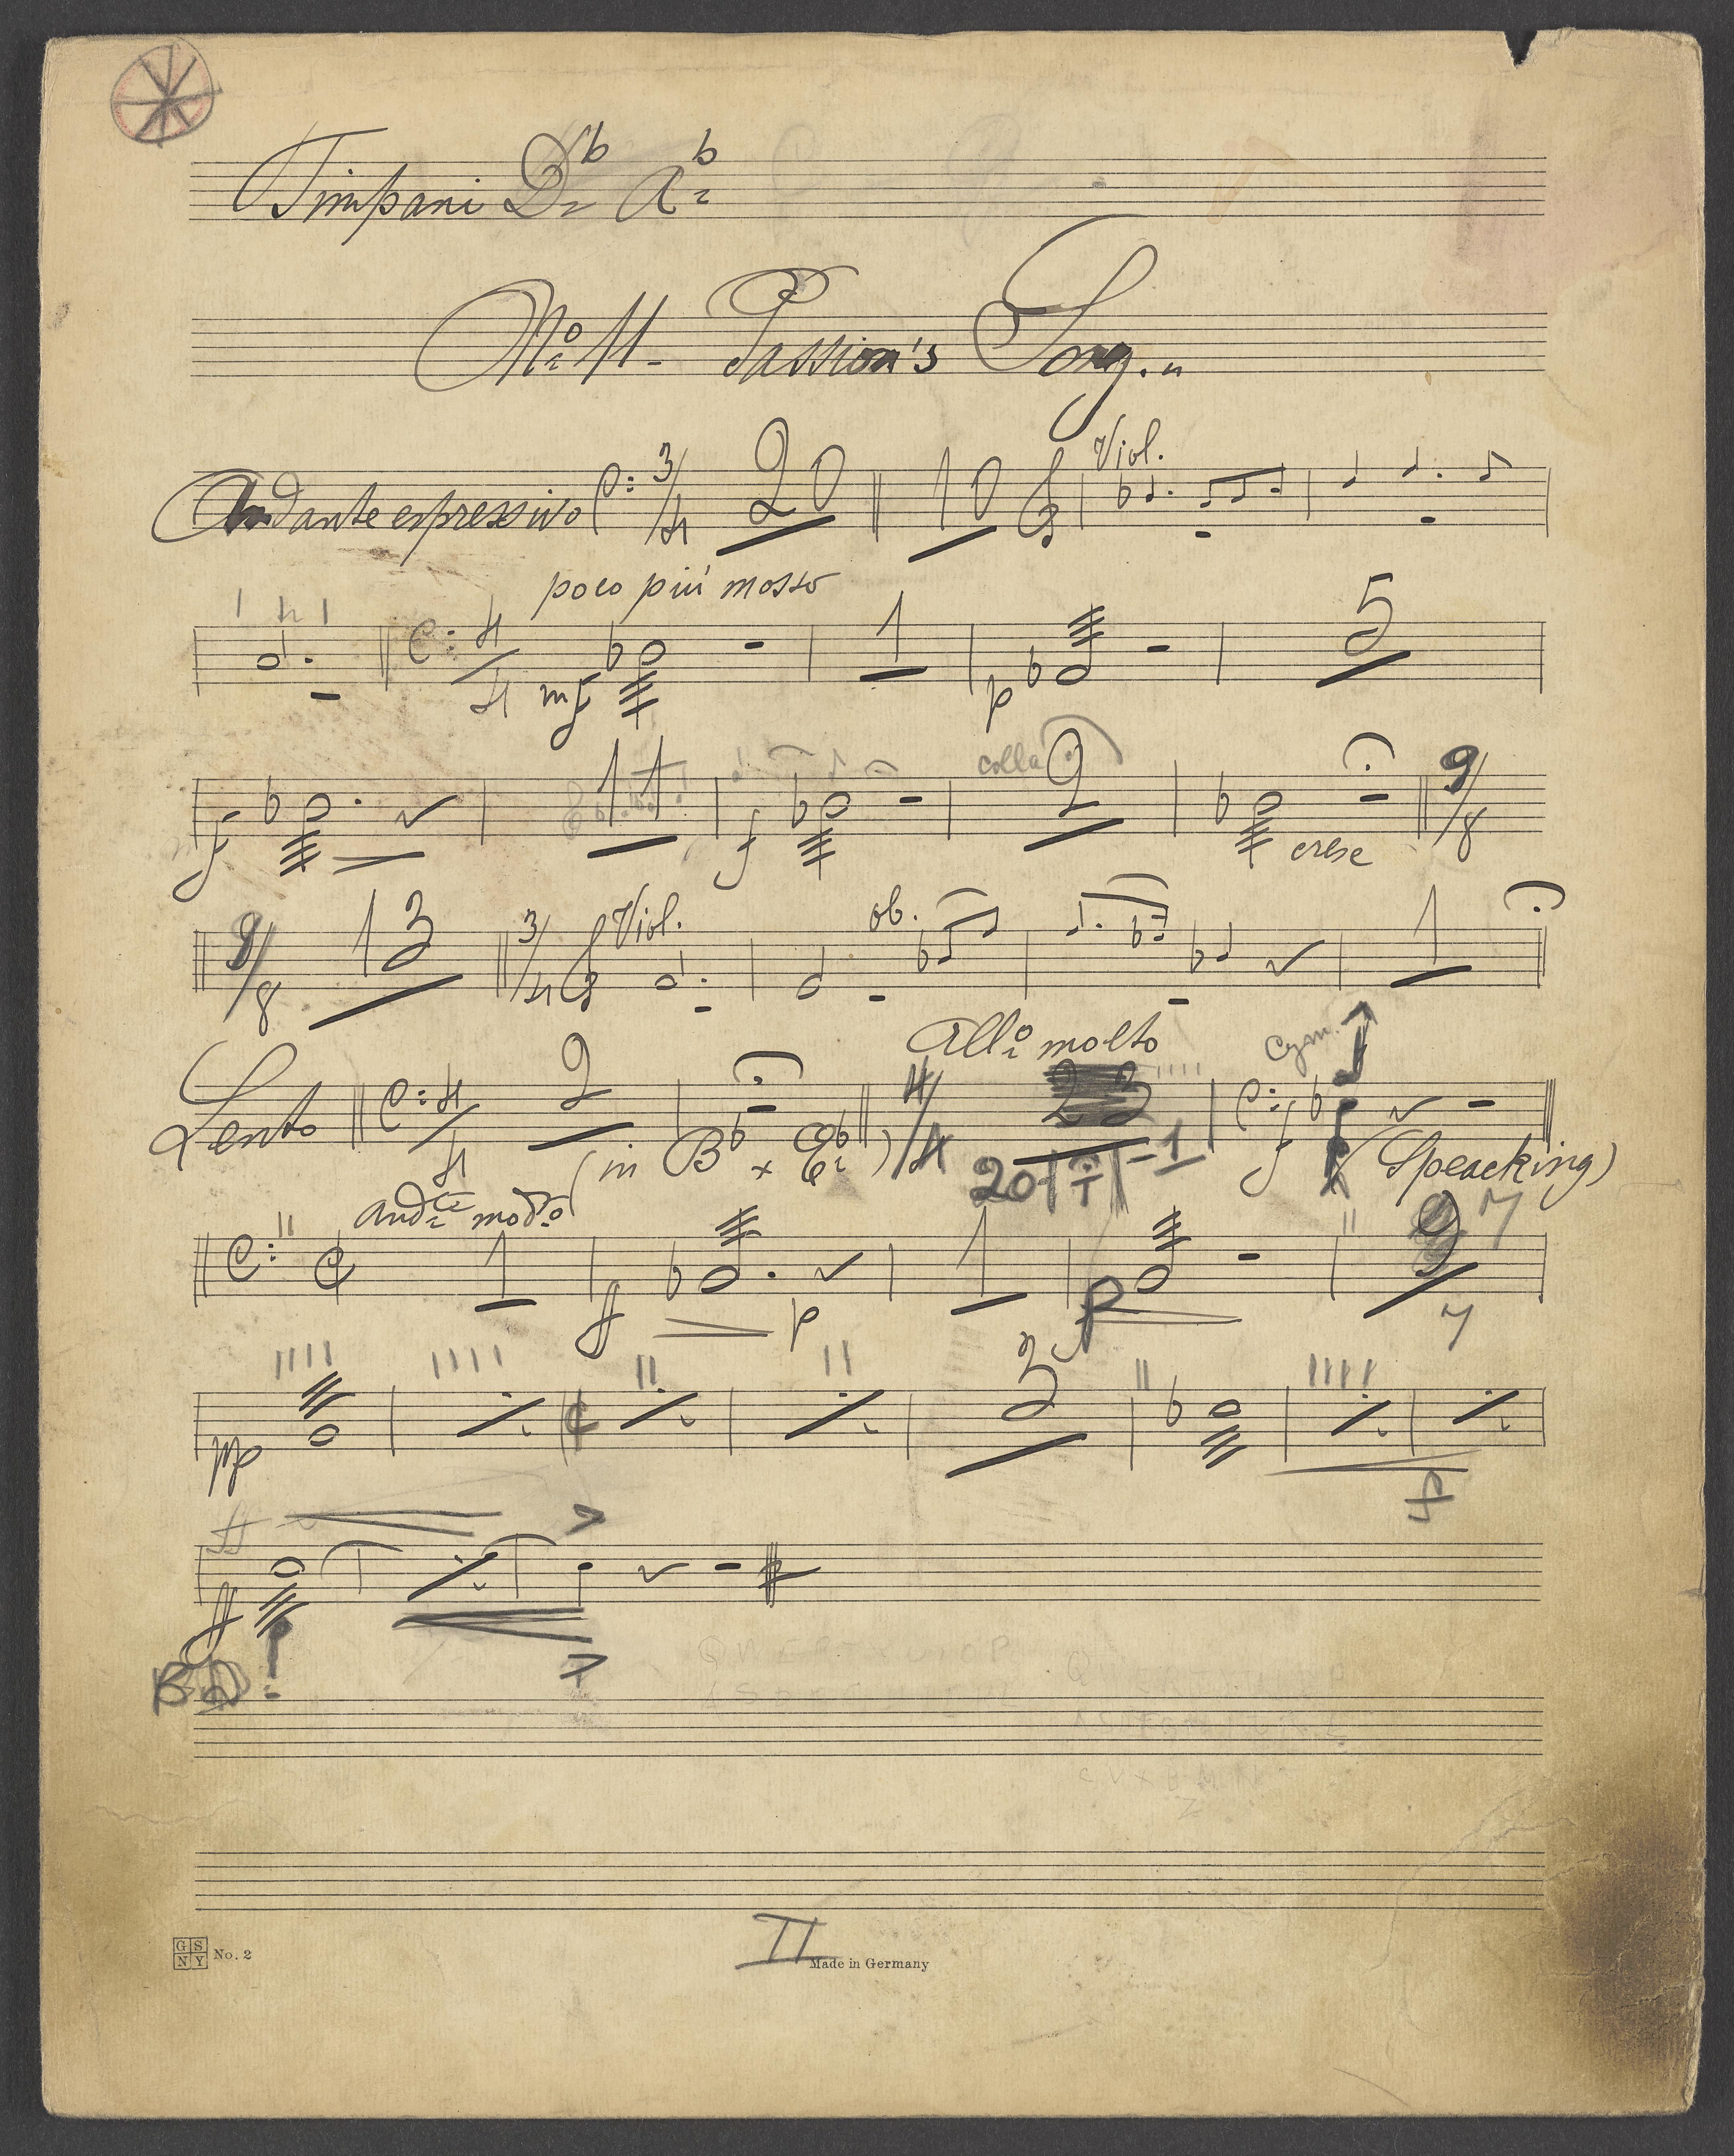 Timpani D♭ A♭
No 11 - Passion's Song.
Andante espressivo 3/4 20 10 Viol.
poco piú mosso
4/4 mf 1 p 5
colla
f 11 f 2 cresc 9/8
9/8 13 3/4 Viol. ob. 1
Allo molto Cym.
Lento 4/4 2 (in B♭ x E♭) 4/4 23 f (Speacking)
20 1
Andte modto
1 f p 1 p 9 7
7
pp 3 f
ff
ff
BD
QWERTYUIOP
II
GS NY No. 2 Made in Germany